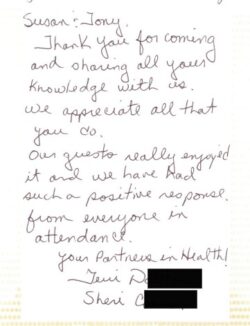 Susan & Tony.
Thank you for coming
and sharing all your
knowledge with us.
We appreciate all that
you do.
Our guests really enjoyed
it and we have had
such a positive response
from everyone in
attendance.
Your Partners in Health!
Teri D
Sheri C